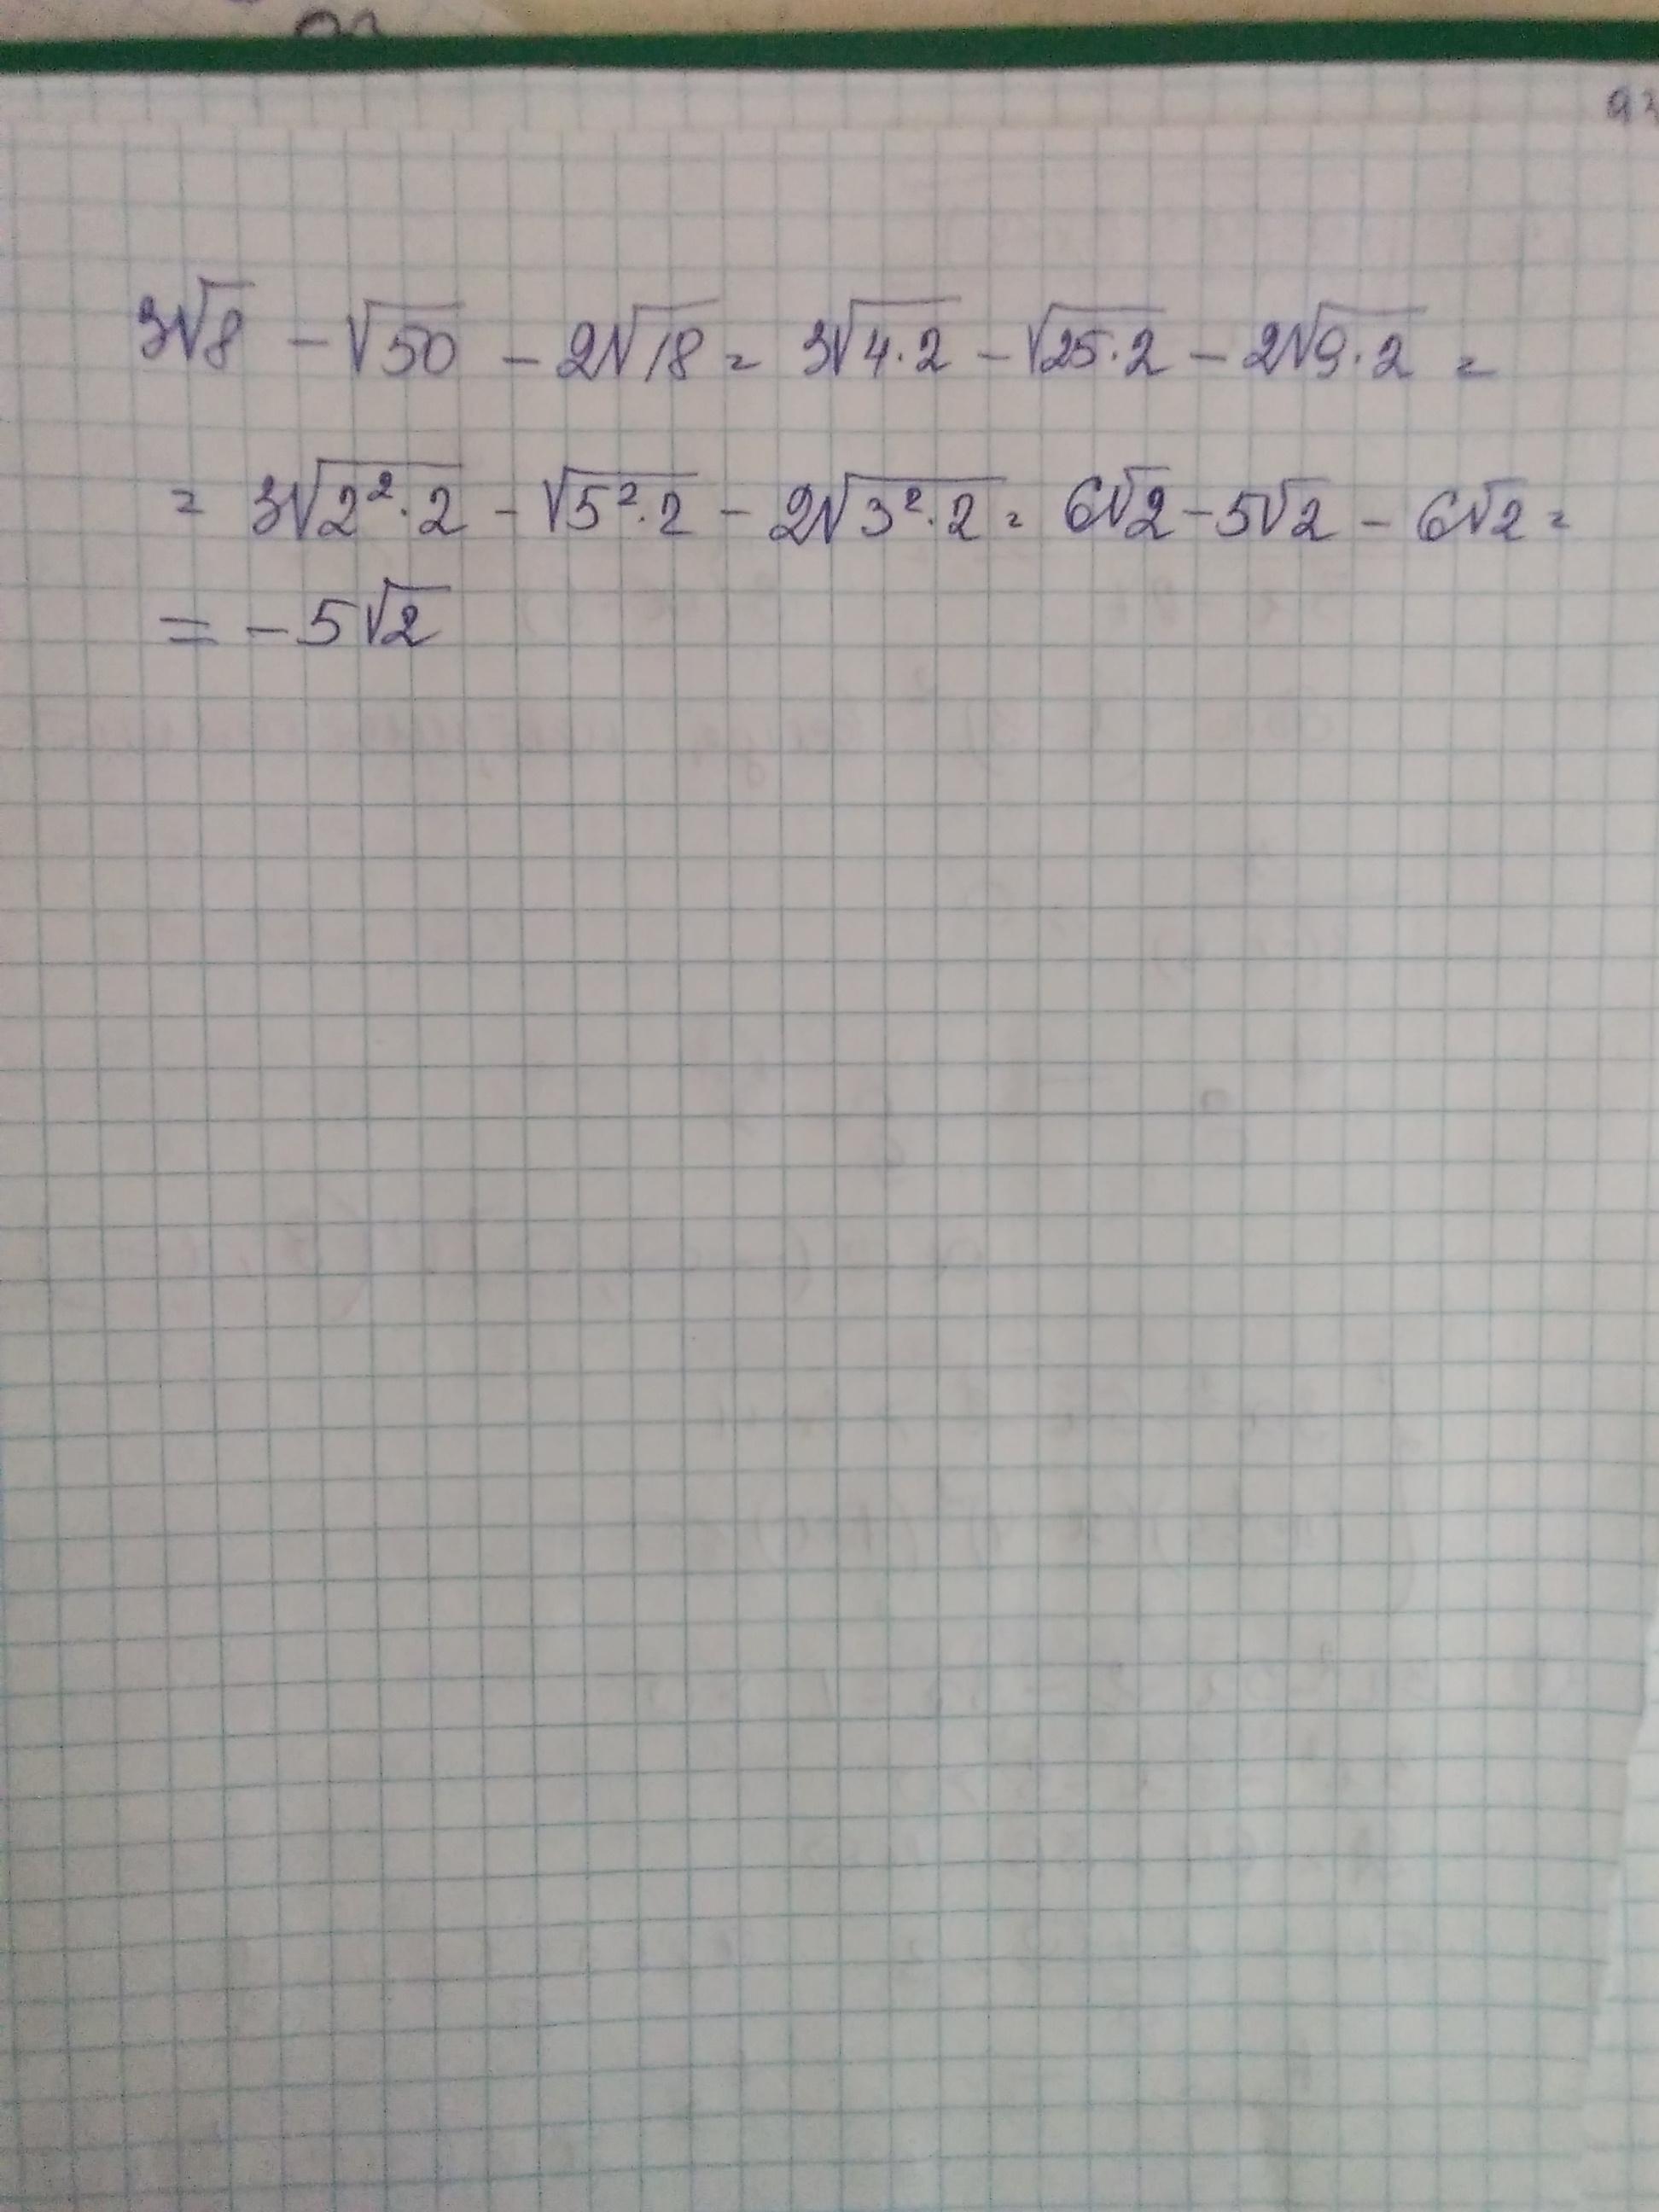 3√8 - √50 - 2√18 = 3√4·2 - √25·2 - 2√9·2 =
= 3√2²·2 - √5²·2 - 2√3²·2 = 6√2 - 5√2 - 6√2 =
= -5√2